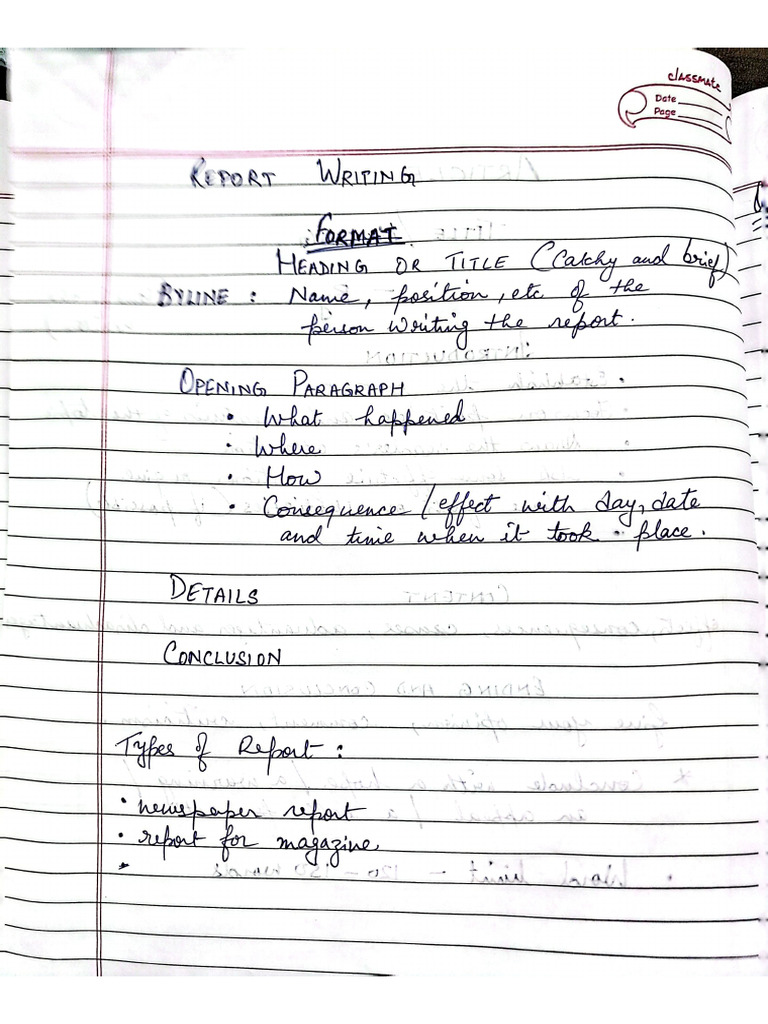 classmate
Date
Page
REPORT WRITING
FORMAT
HEADING OR TITLE (Catchy and brief)
BYLINE : Name, position, etc of the
person writing the report.
OPENING PARAGRAPH
• What happened
• Where
• How
• Consequence / effect with day, date
and time when it took place.
DETAILS
CONCLUSION
Types of Report :
• newspaper report
• report for magazine
•